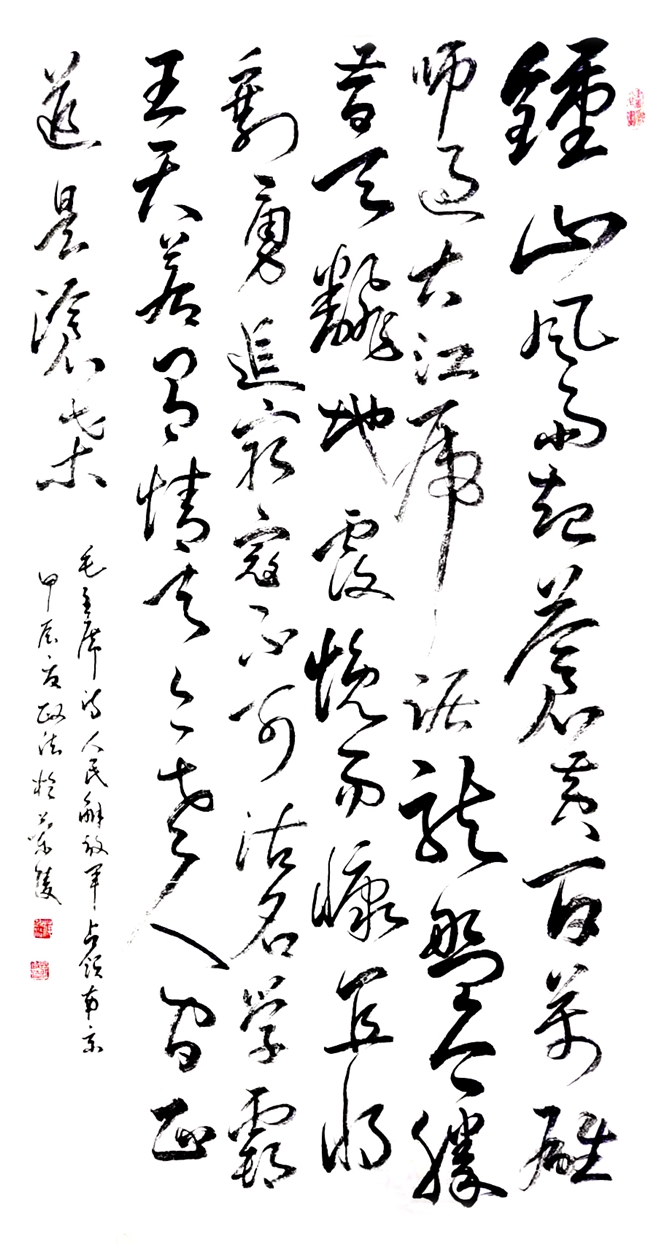 鍾山风雨起蒼黄百万雄
师过大江虎踞龙盘今勝
昔天飜地覆慨而慷宜将
剩勇追穷寇不可沽名学霸
王天若有情天亦老人间正
道是滄桑
毛主席诗人民解放军占领南京
甲辰夏政法於陵